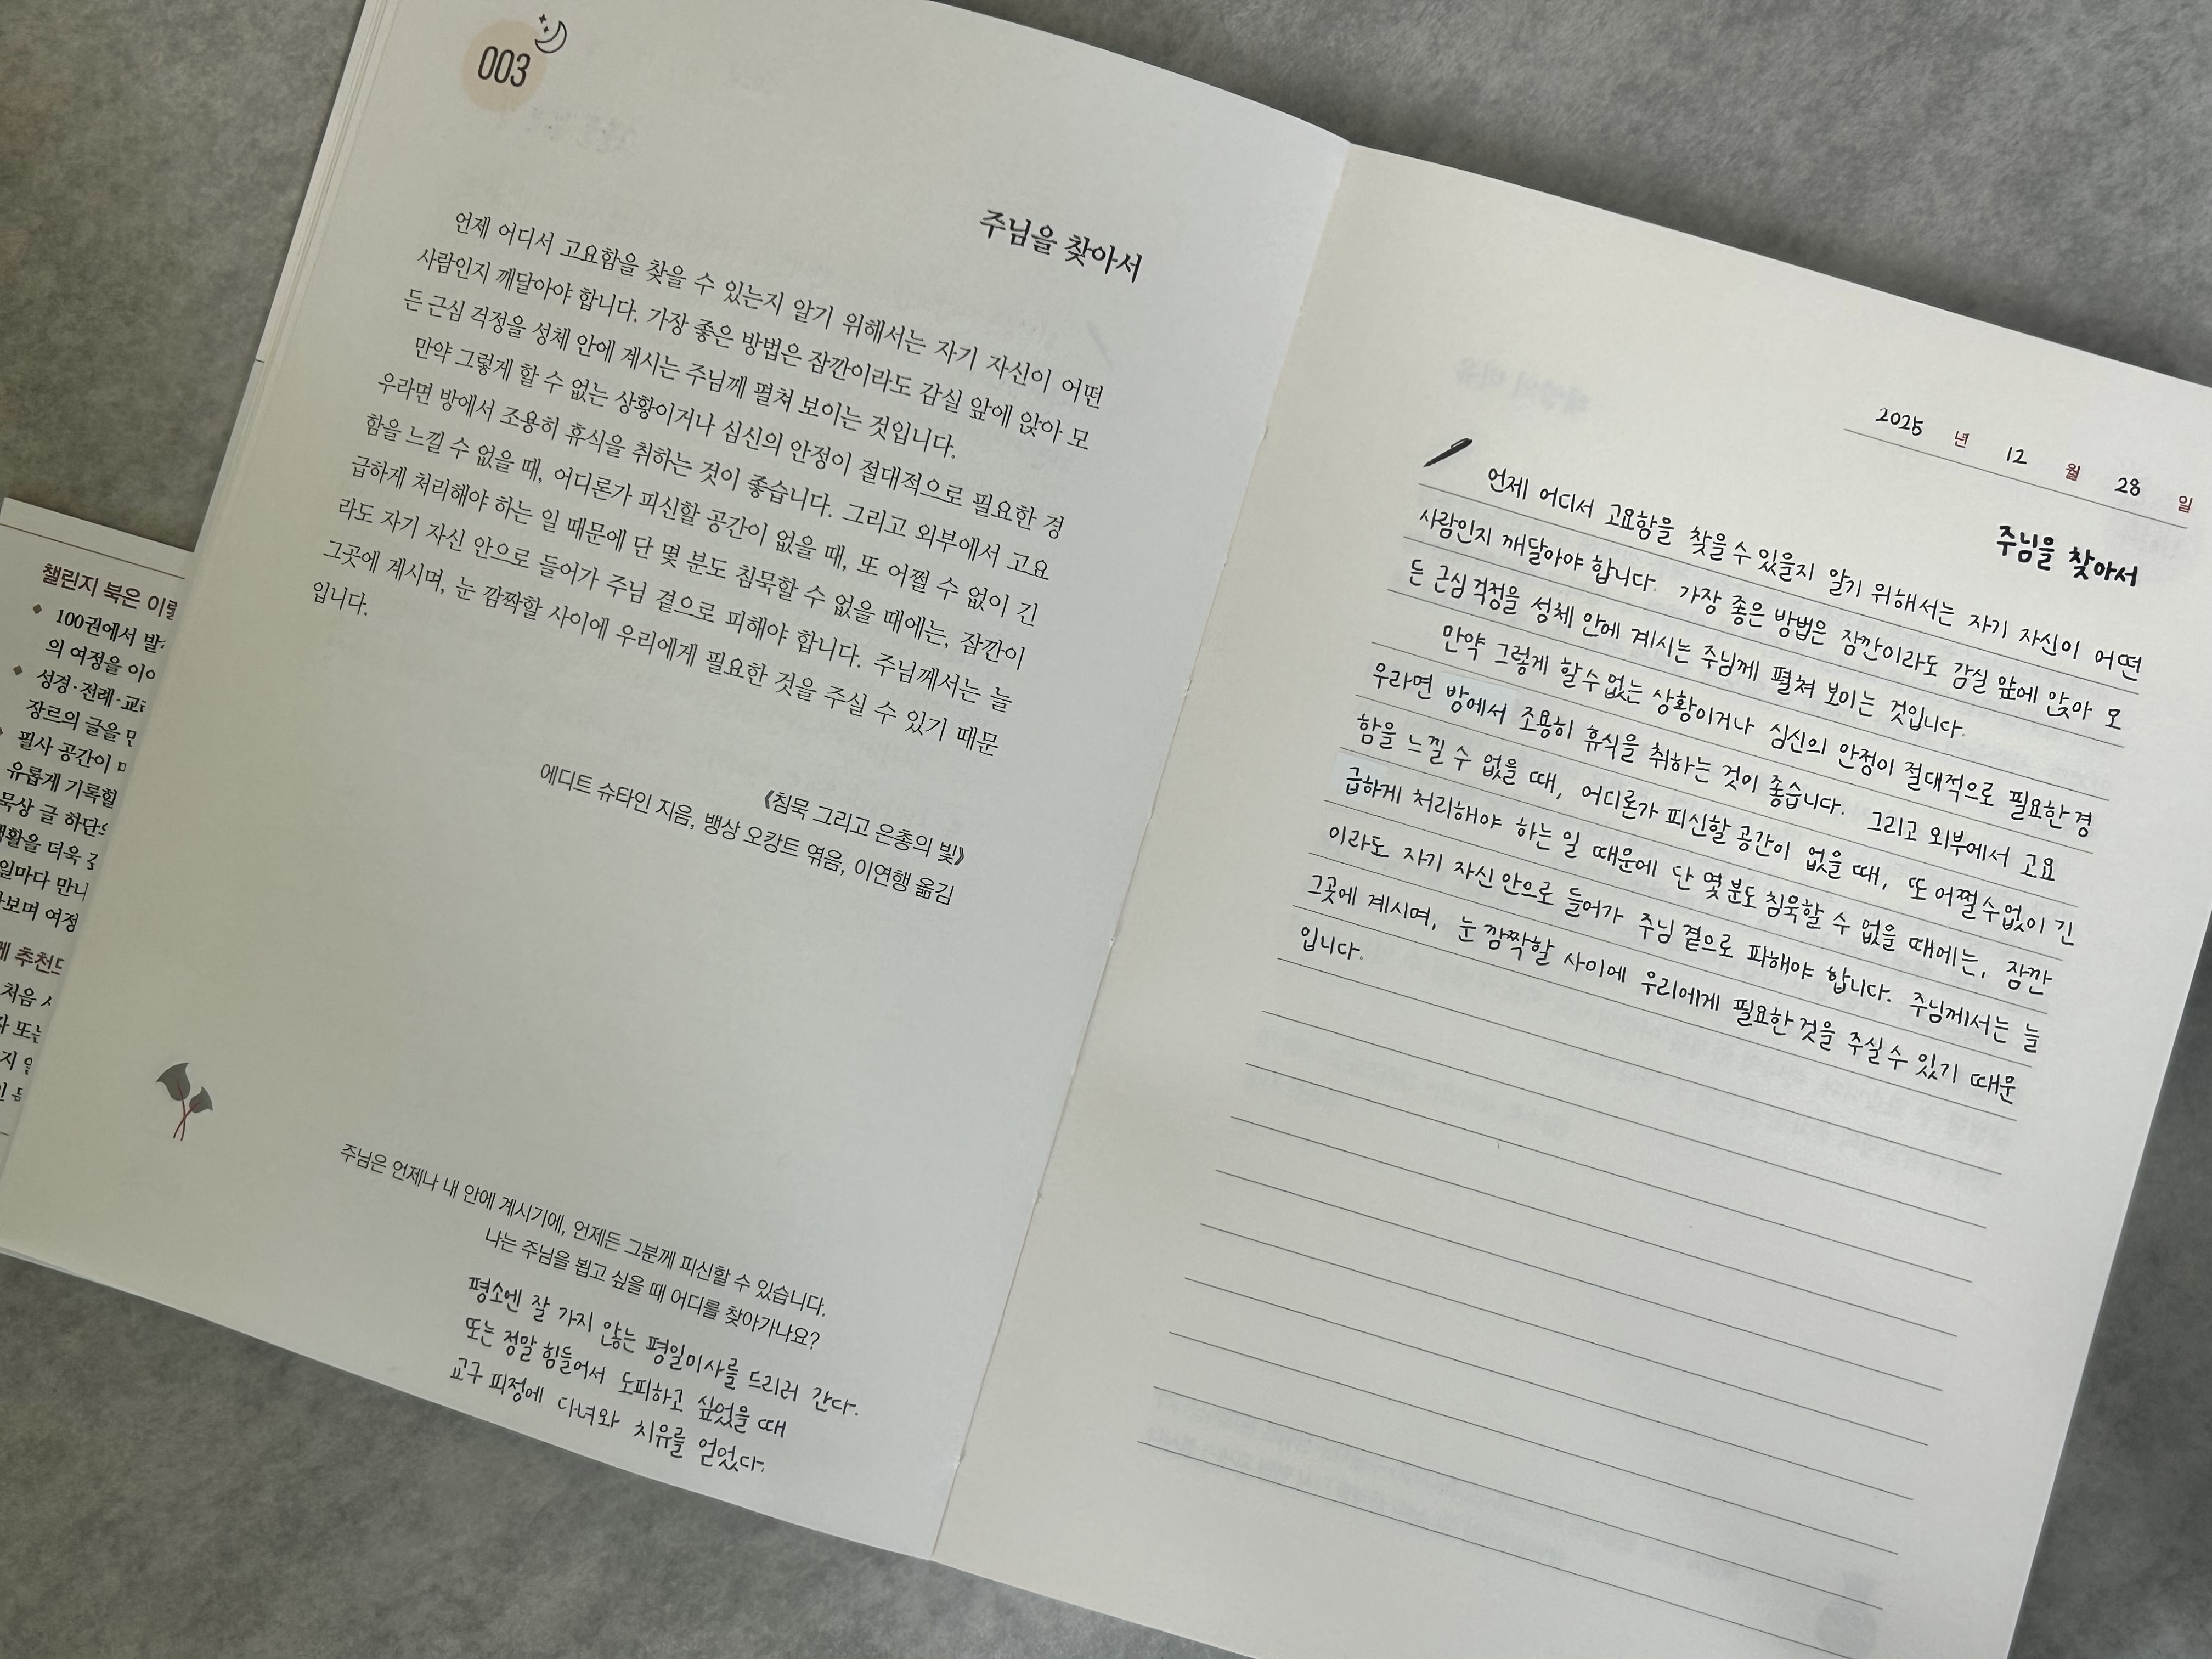 003
주님을 찾아서
언제 어디서 고요함을 찾을 수 있는지 알기 위해서는 자기 자신이 어떤
사람인지 깨달아야 합니다. 가장 좋은 방법은 잠깐이라도 감실 앞에 앉아 모
든 근심 걱정을 성체 안에 계시는 주님께 펼쳐 보이는 것입니다.
만약 그렇게 할 수 없는 상황이거나 심신의 안정이 절대적으로 필요한 경
우라면 방에서 조용히 휴식을 취하는 것이 좋습니다. 그리고 외부에서 고요
함을 느낄 수 없을 때, 어디론가 피신할 공간이 없을 때, 또 어쩔 수 없이 긴
급하게 처리해야 하는 일 때문에 단 몇 분도 침묵할 수 없을 때에는, 잠깐이
라도 자기 자신 안으로 들어가 주님 곁으로 피해야 합니다. 주님께서는 늘
그곳에 계시며, 눈 깜짝할 사이에 우리에게 필요한 것을 주실 수 있기 때문
입니다.
《침묵 그리고 은총의 빛》
에디트 슈타인 지음, 뱅상 오캉트 엮음, 이연행 옮김
주님은 언제나 내 안에 계시기에, 언제든 그분께 피신할 수 있습니다.
나는 주님을 뵙고 싶을 때 어디를 찾아가나요?
평소엔 잘 가지 않는 평일미사를 드리러 간다.
또는 정말 힘들어서 도피하고 싶었을 때
교구 피정에 다녀와 치유를 얻었다.
2025 년 12 월 28 일
주님을 찾아서
언제 어디서 고요함을 찾을 수 있을지 알기 위해서는 자기 자신이 어떤
사람인지 깨달아야 합니다. 가장 좋은 방법은 잠깐이라도 감실 앞에 앉아 모
든 근심 걱정을 성체 안에 계시는 주님께 펼쳐 보이는 것입니다.
만약 그렇게 할 수 없는 상황이거나 심신의 안정이 절대적으로 필요한 경
우라면 방에서 조용히 휴식을 취하는 것이 좋습니다. 그리고 외부에서 고요
함을 느낄 수 없을 때, 어디론가 피신할 공간이 없을 때, 또 어쩔 수 없이 긴
급하게 처리해야 하는 일 때문에 단 몇 분도 침묵할 수 없을 때에는, 잠깐
이라도 자기 자신 안으로 들어가 주님 곁으로 파해야 합니다. 주님께서는 늘
그곳에 계시며, 눈 깜짝할 사이에 우리에게 필요한 것을 주실 수 있기 때문
입니다.
챌린지 북은
100권에서
의 여정을
성경·전례·
장르의 글을
필사 공간이
유롭게
묵상 글
더욱
만나
여정
처음
또는